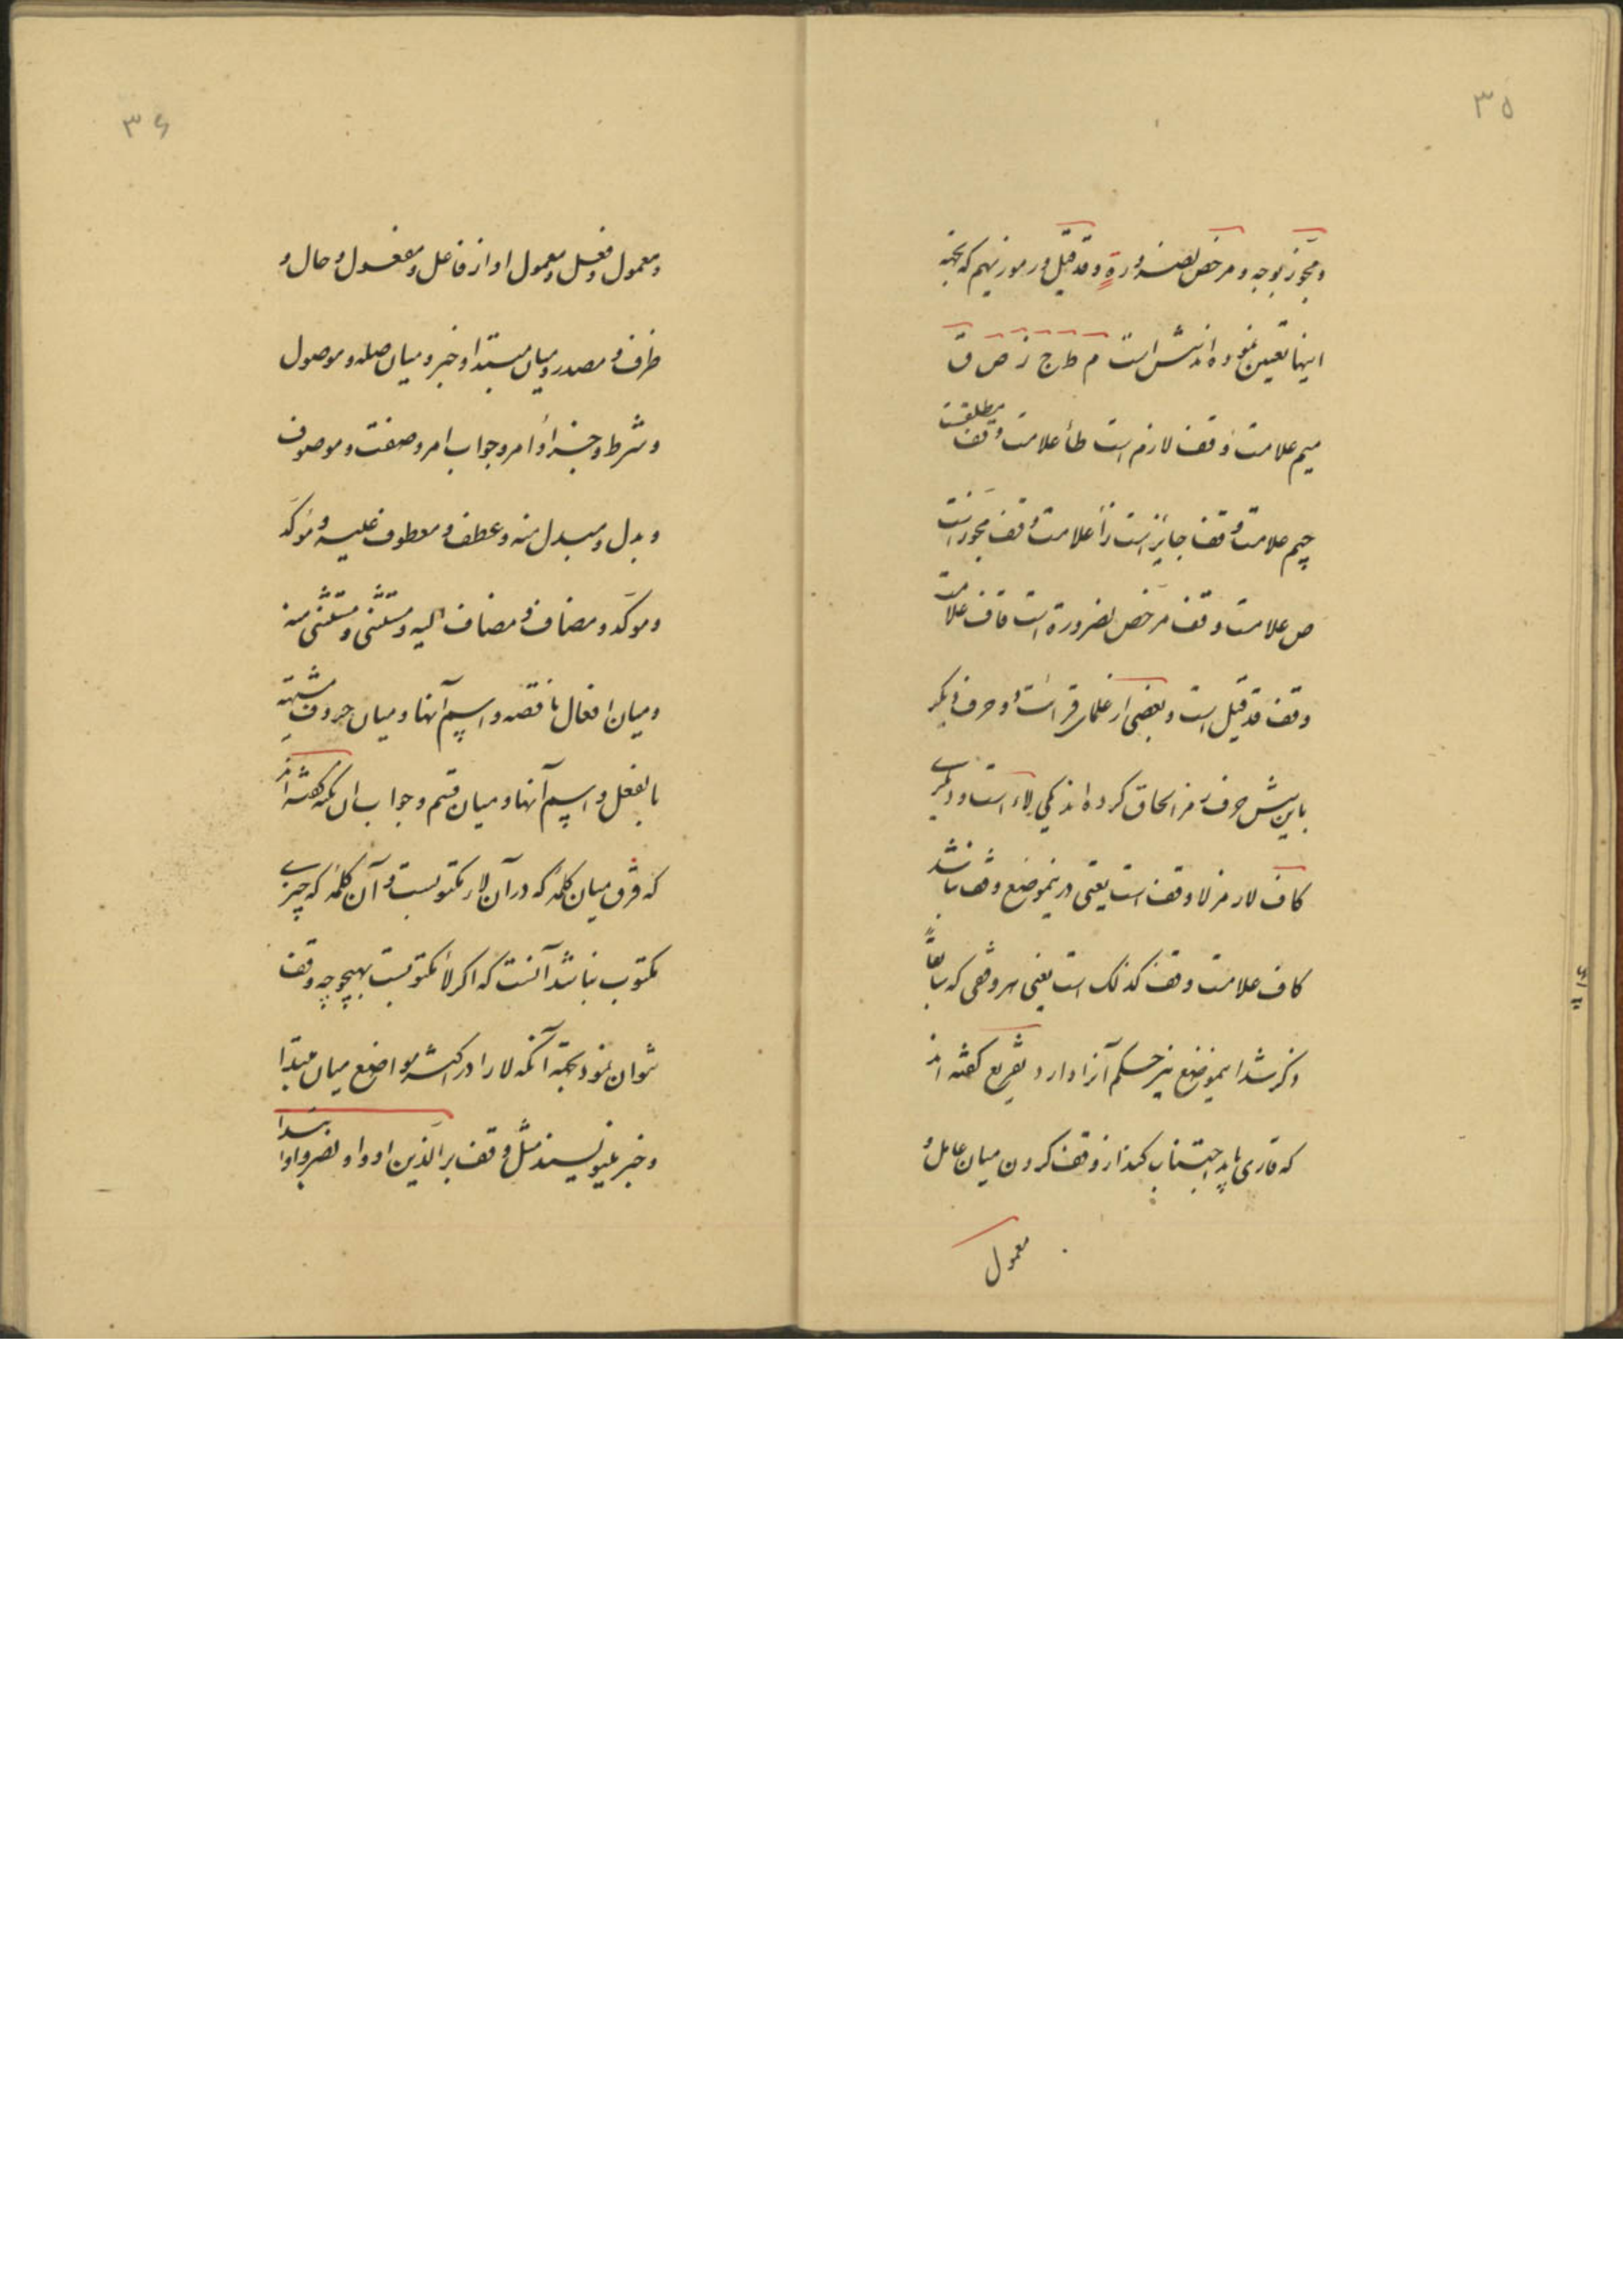 ۳۵
ومجوّز بوجه ومرخّص لضرورة وقد قیل ورموزیهم که بجهة
اینها تعیین نموده اند شش است م ط ج ز ص ق
میم علامت وقف لازم است طأ علامت وقف مطلقست
جیم علامت وقف جایز است زأ علامت وقف مجوّز است
ص علامت وقف مرخّص لضرورة است قاف علامت
وقف قد قیل است وبعضی از علماء قرائت دو حرف دیکر
باین شش حرف رمز الحاق کرده اند یکی لاء است ودیکری
کاف لا رمز لا وقف است یعنی درینموضع وقف نباشد
کاف علامت وقف کذلک است یعنی هر وقفی که سابقاً
ذکر شد اینموضع نیز حکم آنرا دارد تفریع کفته اند
که قاری باید اجتناب کند از وقف کردن میان عامل و
معمول
۳۶
ومعمول وفعل ومعمول او از فاعل ومفعول وحال و
ظرف ومصدر ومیان مبتدا وخبر ومیان صله وموصول
وشرط وجزاء وامر وجواب امر وصفت وموصوف
وبدل ومبدل منه وعطف ومعطوف علیه وموکّد
وموکّد ومضاف ومضاف الیه ومستثنی ومستثنی منه
ومیان افعال ناقصه واسم آنها ومیان حروف مشبّهه
بالفعل واسم آنها ومیان قسم وجواب ان نکته کفته اند
که فرق میان کلمهٔ که در آن لاء مکتوبست وآن کلمهٔ که چیزی
مکتوب نباشد آنست که اکر لا مکتوبست بهیچوجه وقف
نتوان نمود بجهة آنکه لا را در اکثر مواضع میان مبتدا
وخبر مینویسند مثل وقف بر الّذین اووا ونصروا ابتدا